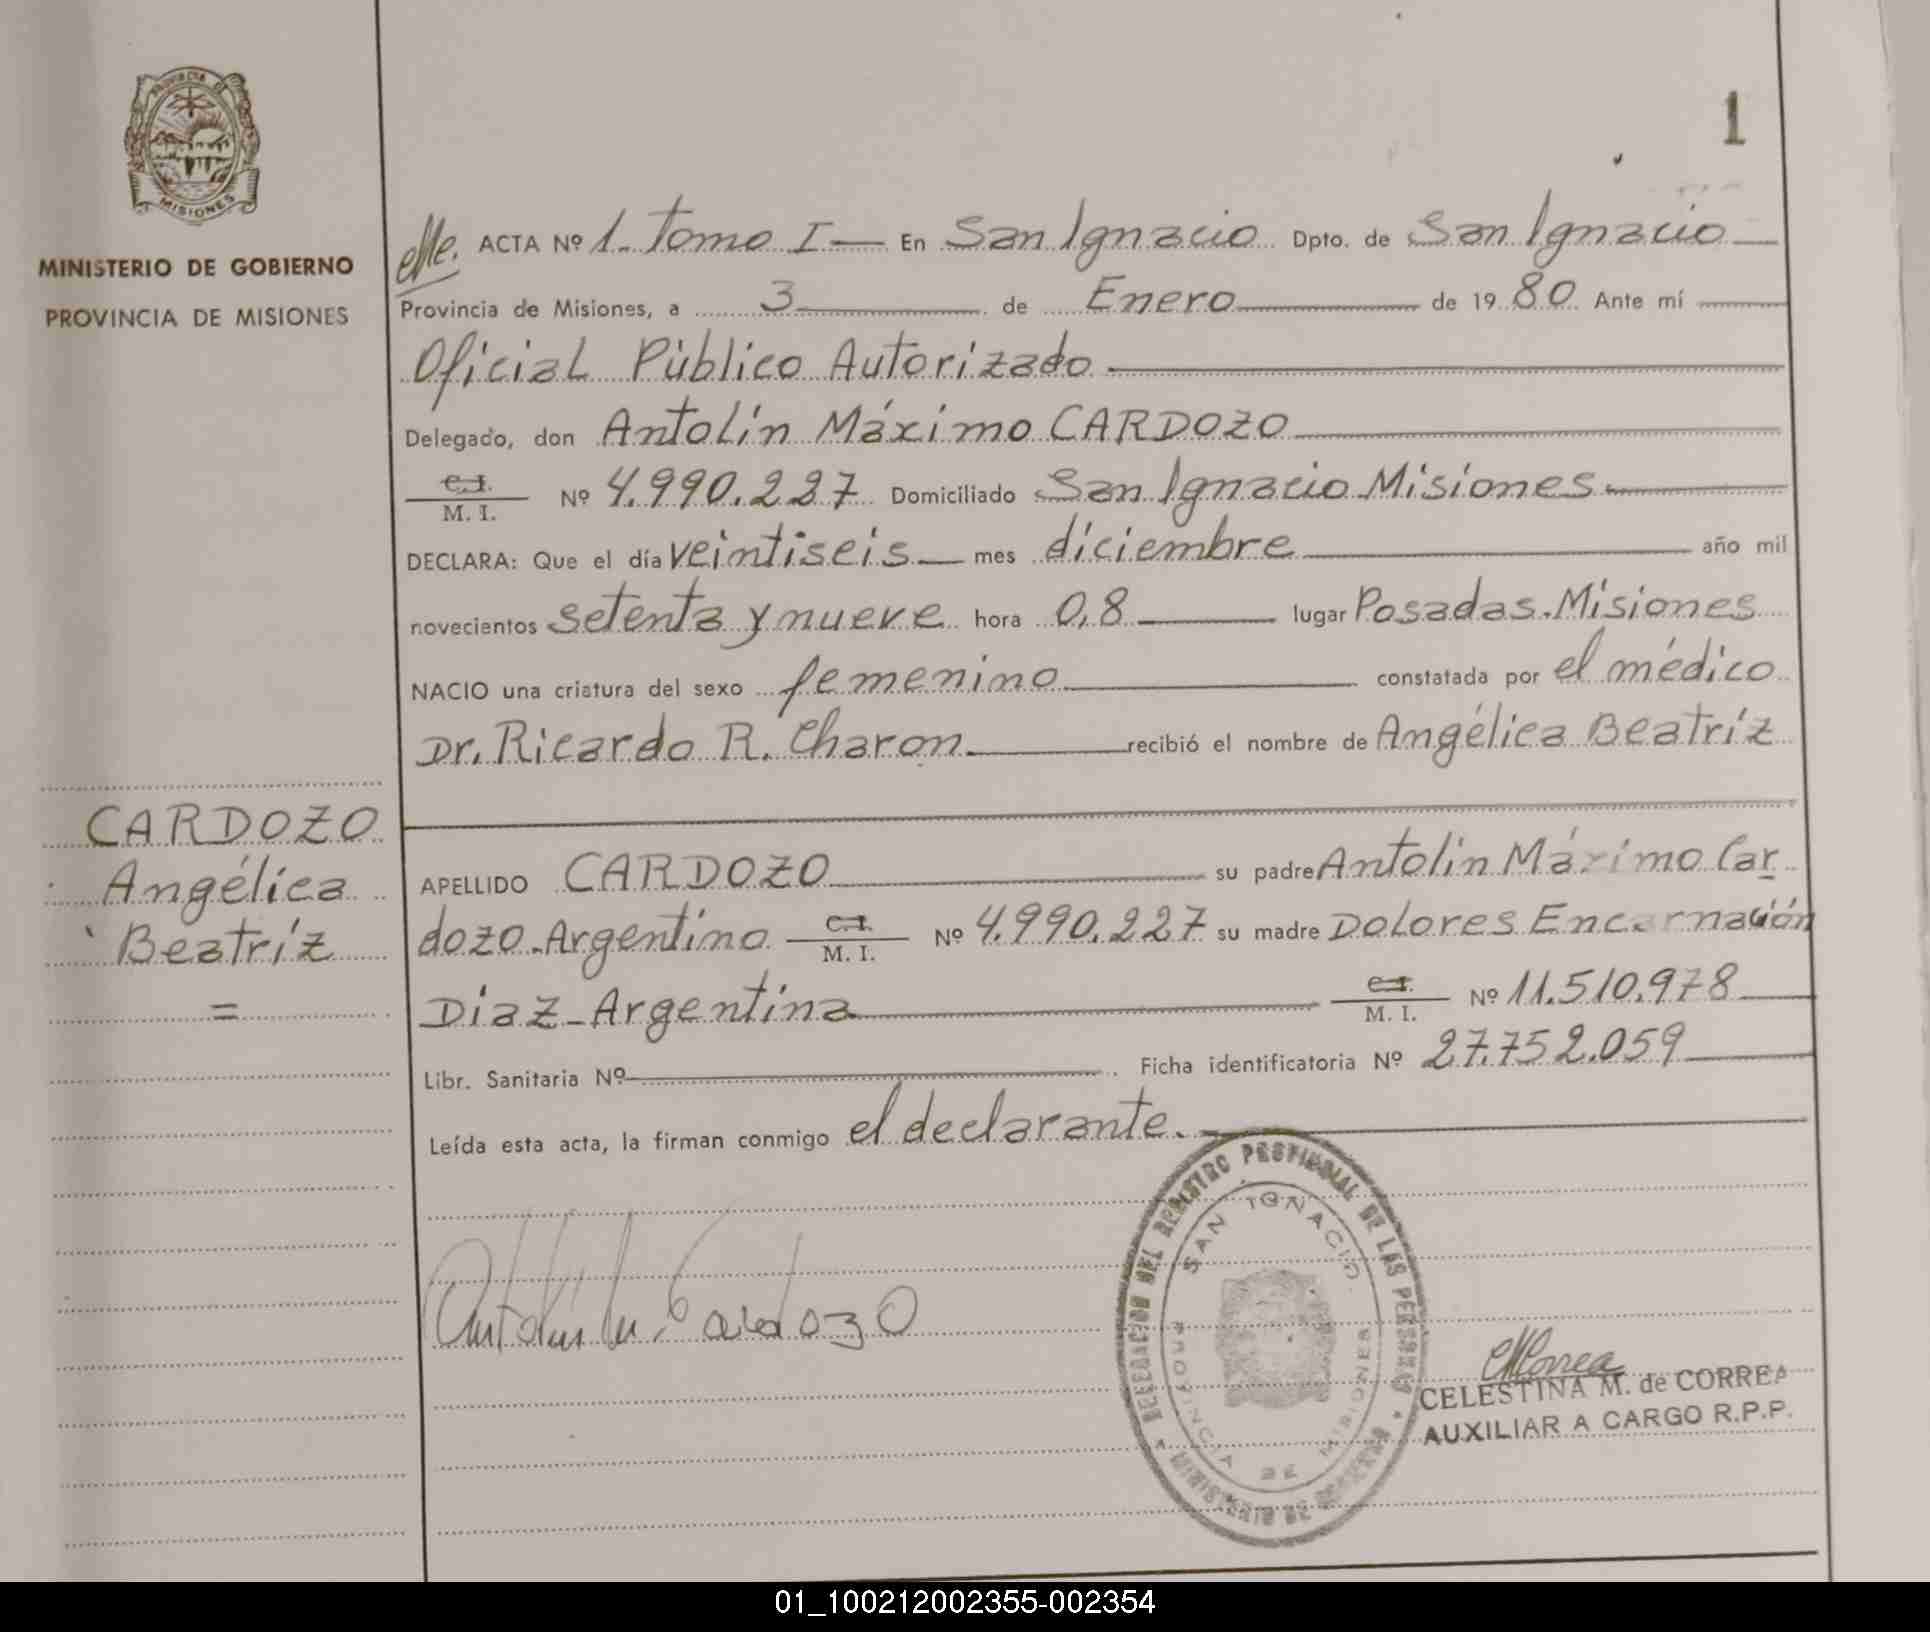 PROVINCIA DE
MISIONES
MINISTERIO DE GOBIERNO
PROVINCIA DE MISIONES
CARDOZO
Angélica
Beatríz
=
1
ACTA Nº 1. Tomo I — En San Ignacio Dpto. de San Ignacio
Provincia de Misiones, a 3 de Enero de 1980. Ante mí
Oficial Público Autorizado
Delegado, don Antolín Máximo CARDOZO
C. I.
M. I. Nº 4.990.227 Domiciliado San Ignacio Misiones
DECLARA: Que el día veintiseis mes diciembre año mil
novecientos setenta y nueve hora 0,8 lugar Posadas. Misiones
NACIO una criatura del sexo femenino constatada por el médico
Dr. Ricardo R. Charon recibió el nombre de Angélica Beatríz
APELLIDO CARDOZO su padre Antolín Máximo Car
dozo - Argentino C. I. M. I. Nº 4.990.227 su madre Dolores Encarnación
Diaz - Argentina C. I. M. I. Nº 11.510.978
Libr. Sanitaria Nº Ficha identificatoria Nº 27.752.059
Leída esta acta, la firman conmigo el declarante.
Antolín M. Cardozo
DEL REGISTRO PROVINCIAL DE LAS PERSONAS * MINISTERIO DE GOBIERNO *
SAN IGNACIO
PROVINCIA DE MISIONES
CELESTINA M. de CORREA
AUXILIAR A CARGO R.P.P.
01_100212002355-002354